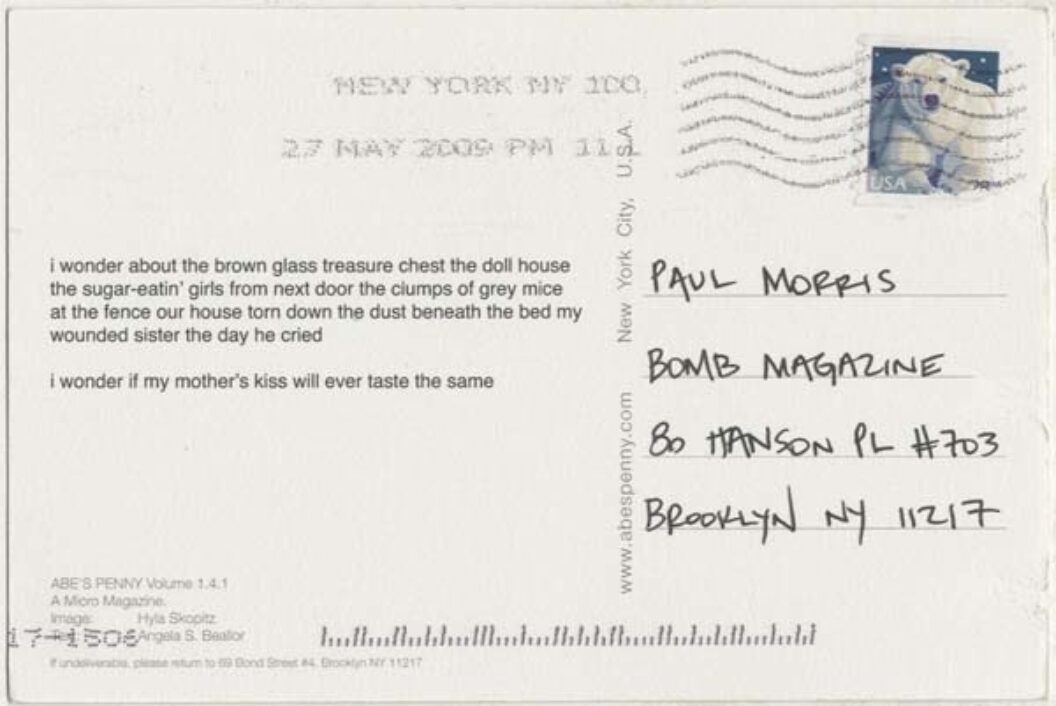 NEW YORK NY 100
27 MAY 2009 PM 11 L
USA
i wonder about the brown glass treasure chest the doll house
the sugar-eatin' girls from next door the clumps of grey mice
at the fence our house torn down the dust beneath the bed my
wounded sister the day he cried
i wonder if my mother's kiss will ever taste the same
ABE'S PENNY Volume 1.4.1
A Micro Magazine.
Image: Hyla Skopitz
Angela S. Beallor
17-1506
If undeliverable, please return to 69 Bond Street #4, Brooklyn NY 11217
www.abespenny.com New York City, U.S.A.
PAUL MORRIS
BOMB MAGAZINE
80 HANSON PL #703
BROOKLYN NY 11217